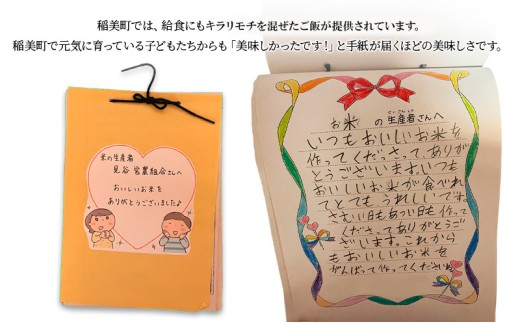 稲美町では、給食にもキラリモチを混ぜたご飯が提供されています。
稲美町で元気に育っている子どもたちからも「美味しかったです!」と手紙が届くほどの美味しさです。
米の生産者
見谷 営農組合さんへ
おいしいお米を
ありがとうございました♪
お米 の生産者さんへ
せいさんしゃ
いつもおいしいお米を
作ってくださってありが
とうございます。いつも
おいしいお米が食べれ
てとてもうれしいです。
さむい日もあつい日も作って
くださってありがとうご
ざいます。これから
もおいしいお米を
がんばって作ってくださいね